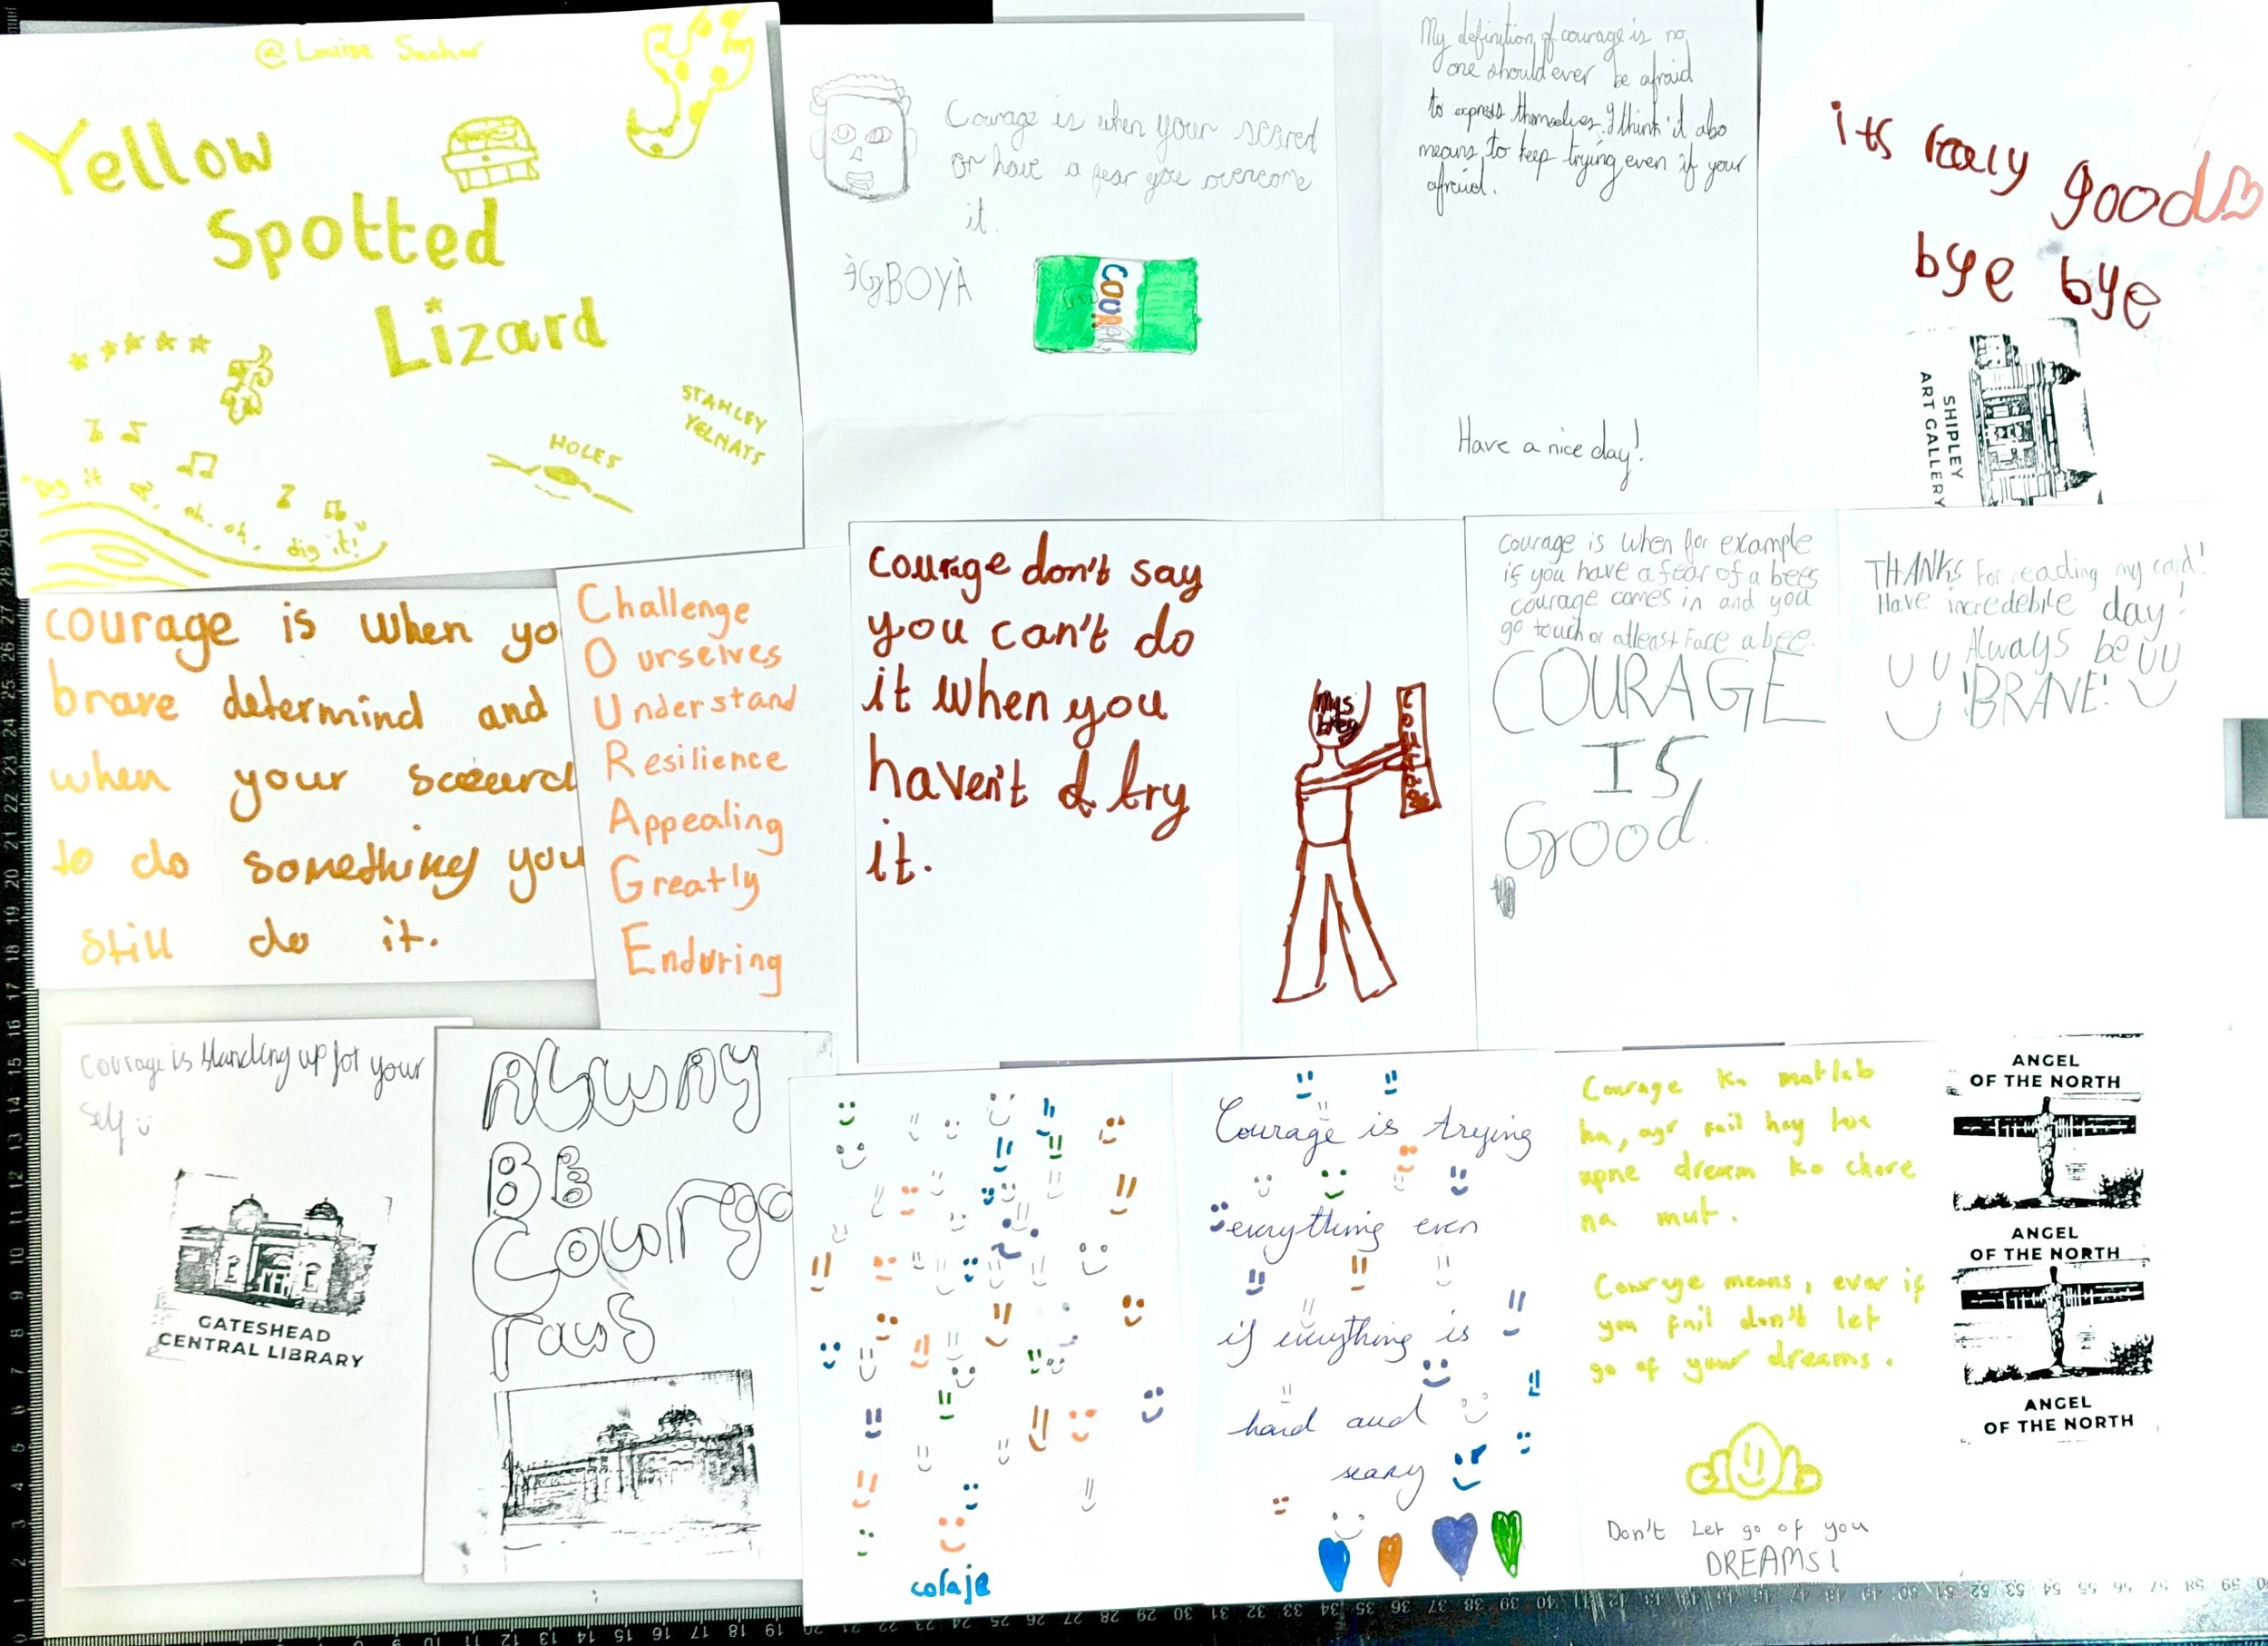 @Louise Sachar
Yellow
Spotted
Lizard
STANLEY
YELNATS
HOLES
oh, oh,
dig it!"
Courage is when your scared
or have a fear you overcome
it.
ÌGBOYÀ
My definition of courage is no
one should ever be afraid
to express themselves. I think it also
means to keep trying even if your
afraid.
Have a nice day!
its realy good
bye bye
SHIPLEY
ART GALLERY
courage is when yo
brave determind and
when your
to do something you
still do it.
Challenge
Ourselves
Understand
Resilience
Appealing
Greatly
Enduring
courage don't say
you can't do
it when you
haven't try
it.
courage is when for example
if you have a fear of a bees
courage comes in and you
go touch or atleast face a bee.
COURAGE
IS
Good.
THANKS For reading my card!
Have incredebile day!
Always be
!BRAVE!
Courage is standing up for your
self
GATESHEAD
CENTRAL LIBRARY
ALWAY
BB
Courge
colaje
Courage is trying
everything even
if everything is
hard and
scary
Courage Ka matlab
ha, agr fail hoy toe
apne dream ko chore
na mut.
Courage means, ever if
you fail don't let
go of your dreams.
Don't Let go of you
DREAMS!
ANGEL
OF THE NORTH
ANGEL
OF THE NORTH
ANGEL
OF THE NORTH